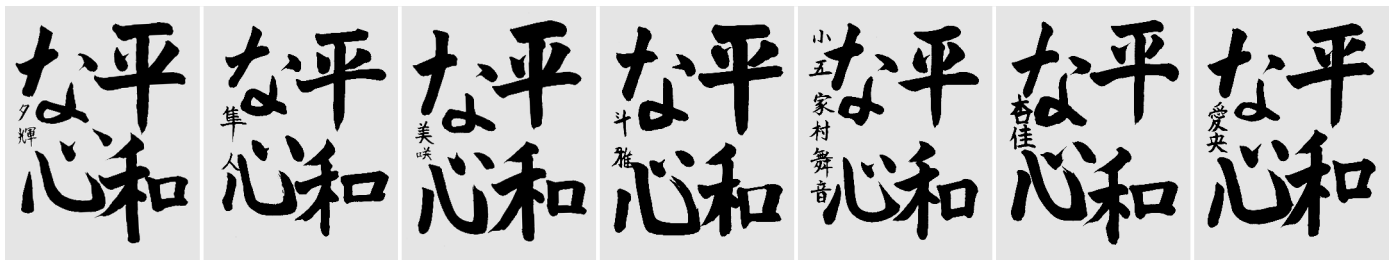 平和
な心
夕輝
平和
な心
隼人
平和
な心
美咲
平和
な心
斗雅
平和
な心
小五 家村舞音
平和
な心
杏佳
平和
な心
愛央